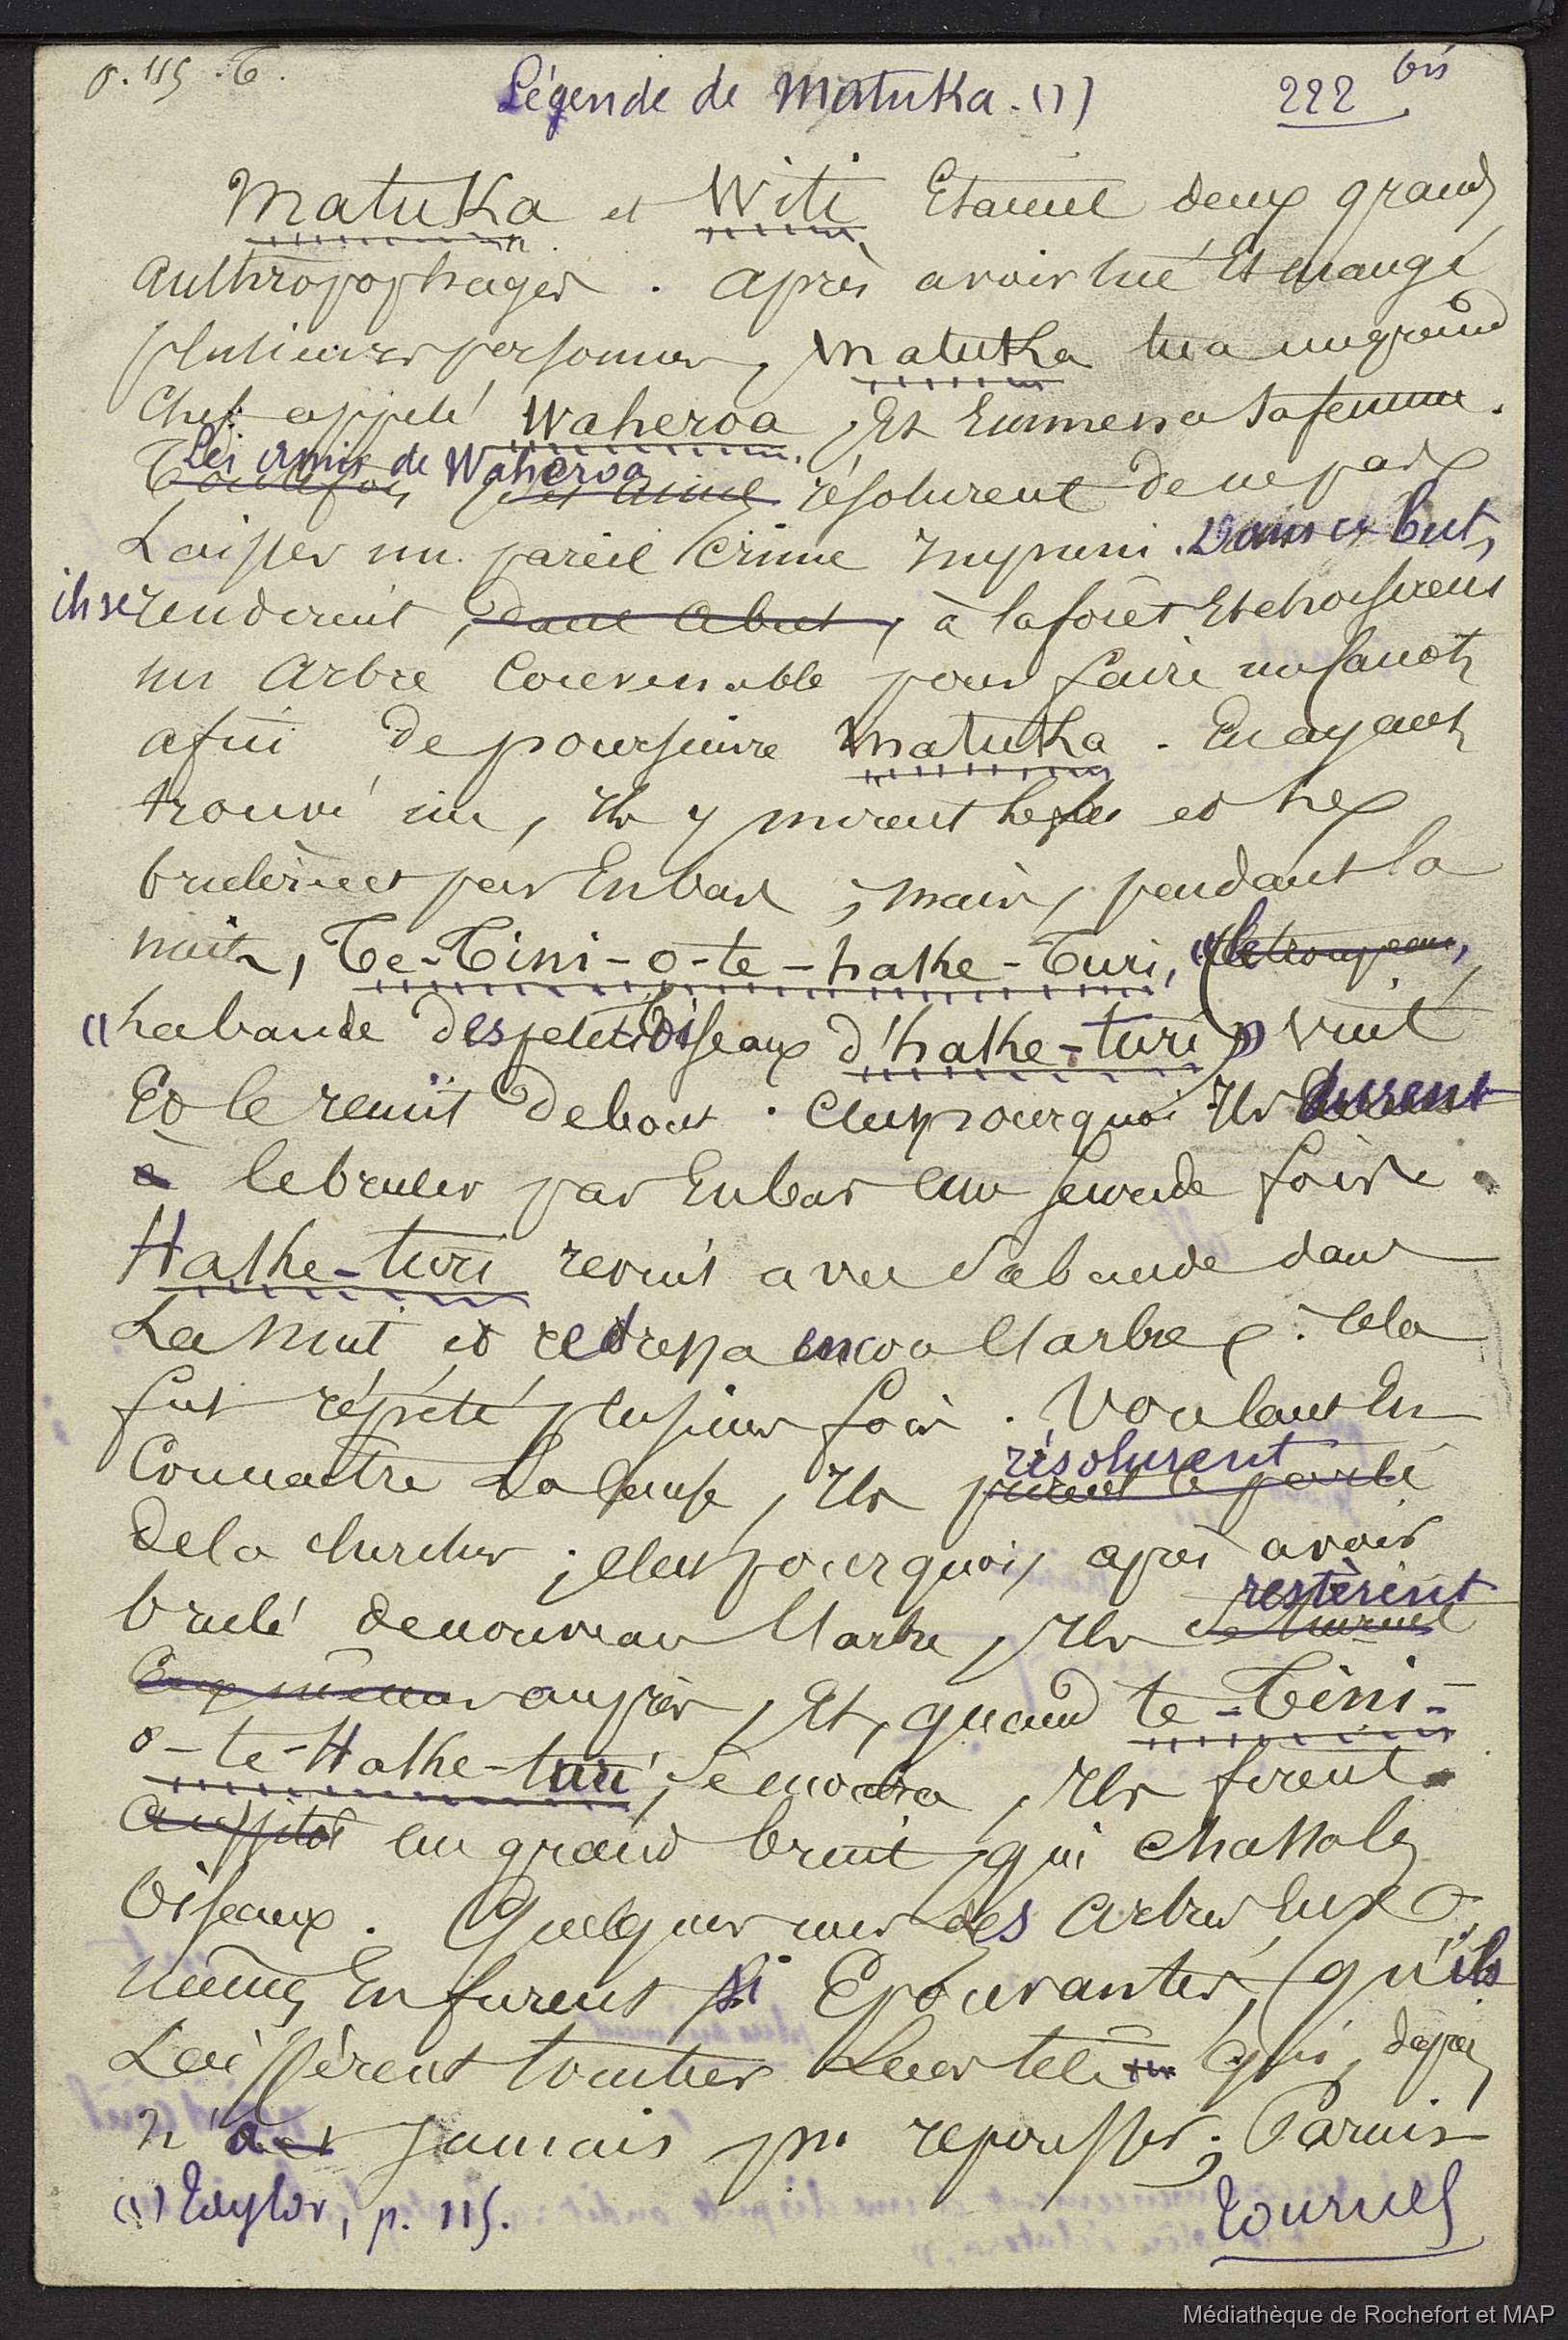 p. 115. T.
Légende de Matuka. (1)
222 bis
Matuka et Witi Etaient deux grands
anthropophages. après avoir tué Et mangé
plusieurs personnes, Matuka tua un grand
Chef appelé Waheroa, Et Emmena sa femme.
Les amis de Waheroa
Toutefois ses amis résolurent de ne pas
Laisser un pareil Crime Impuni. Dans ce but,
ils se rendirent, dans ce but, à la forêt Et choisirent
un Arbre Convenable pour faire un canot
afin de poursuivre Matuka. En ayant
trouvé un, Ils y mirent le feu et le
brulèrent par En bas ; mais, pendant la
nuit, Te-Tini-o-te-hake-Turi, (le troupeau,
"La bande des petits Oiseaux d'hake-turi") vint
Et le remit Debout. C'est pourquoi Ils durent
à le bruler par En bas une seconde fois.
Hake-turi revint avec Sa bande dans
La Nuit et redressa encore l'arbre. Cela
fut répété plusieurs fois. Voulant En
Connaitre La Cause, Ils prirent le parti
résolurent
De la chercher ; c'est pourquoi, après avoir
brulé de nouveau l'arbre, Ils se tinrent
restèrent
Eux mêmes auprès, Et, quand te-Tini-
o-te-Hake-turi, se montra, Ils firent
Aussitot un grand bruit, qui chassa les
Oiseaux. Quelques uns des Arbres Eux
mêmes En furent si Epouvantés, qu'ils
Laissèrent tomber Leur tête qui, depuis,
n'a jamais pu repousser ; Parmis
(1) Taylor, p. 115.
tournez
Médiathèque de Rochefort et MAP